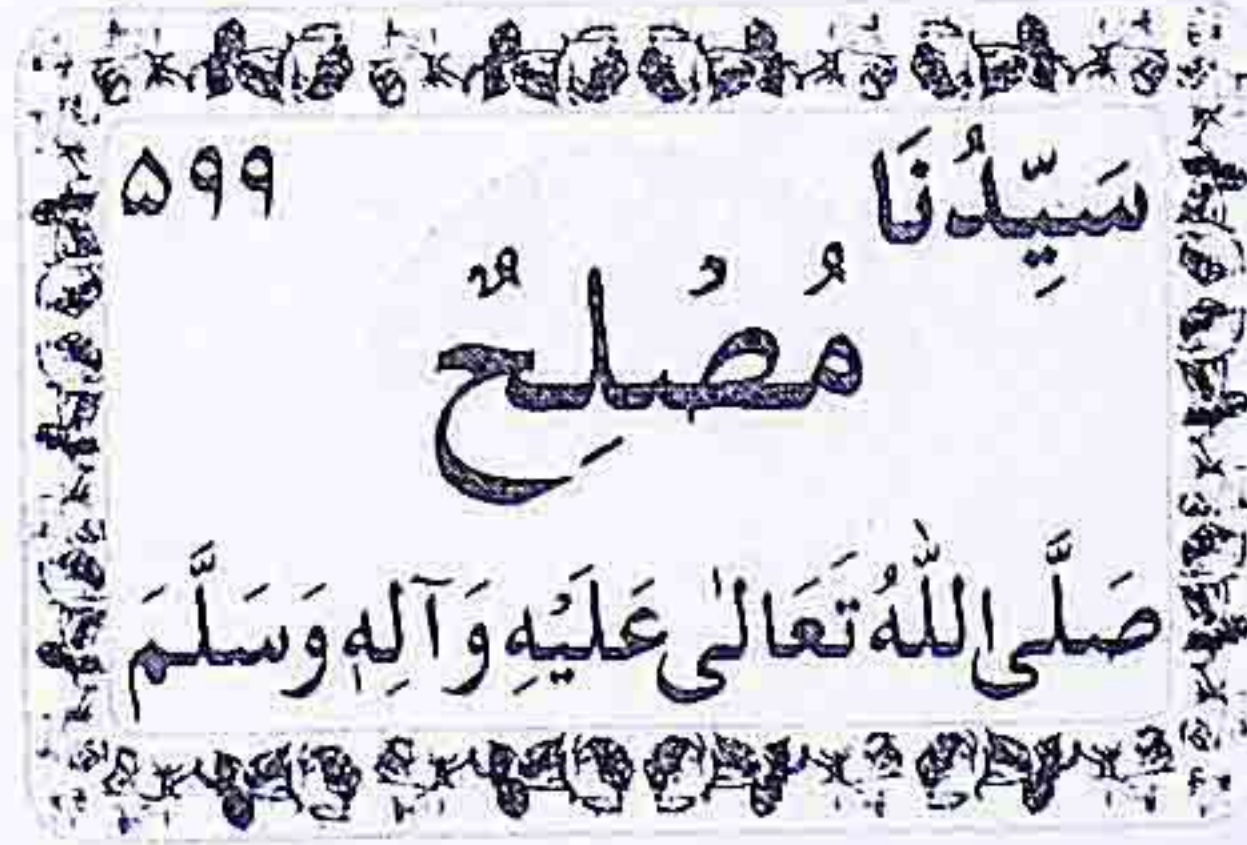 سَيِّدُنَا ۵۹۹
مُصْلِحٌ
صَلَّى اللّٰهُ تَعَالٰى عَلَيْهِ وَآلِهٖ وَسَلَّمَ